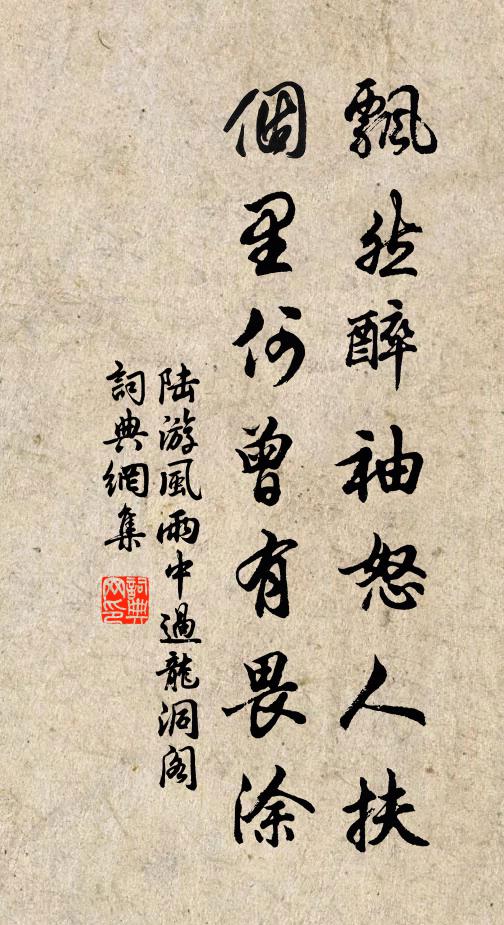 飄然醉袖怒人扶
個里何曾有畏涂
陆游風雨中過龍洞阁
詞典網集
詞典网印